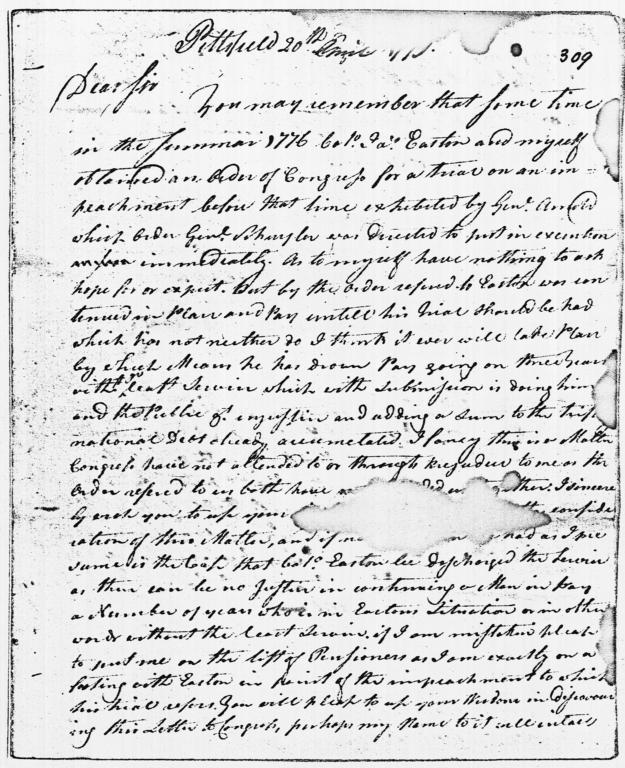 Pittsfield 20th
309
Dear Sir
You may remember that some time
in the summar 1776 Colo. Jas. Easton and myself
obtained an order of Congress for a trial on an im-
peachment before that time exhibited by Genl. Arnold
which order Genl. Schuyler was directed to put in execution
immediately. As to myself have nothing to ask
hope for or expect. But by the order refered to Easton was con
tinued in Place and Pay untill his Trial should be had
which has not neither do I think it ever will take Place
by which Means he has drawn Pay going on three years
witht. the least Service which with submission is doing him
and the Publie injustice and adding a sum to the
national Debt already accumelated. I fancy this is a Matter
Congress have not attended to or through prejudice to me as the
order refered to us both have I sincere
ly wish you to use your the conside
ration of this Matter, and if had as I pre
sume is the Case that Colo. Easton be discharged the Service
as there can be no Justice in continuing a Man in Pay
a Number of years who is in Eastons Situation or in other
words without the least Service, if I am mistaken please
to put me on the list of Pensioners as I am exactly on a
footing with Easton in point of the impeachment to which
his trial refers. You will please to use your Wisdom in discover
ing this Letter to Congress, perhaps my Name to it will intail